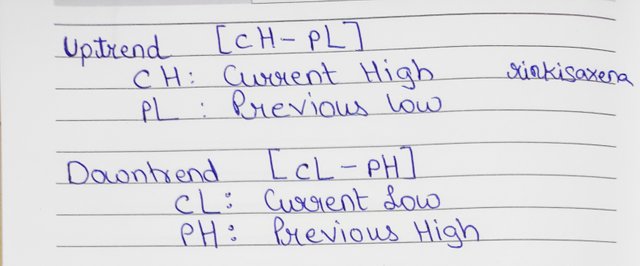 Uptrend [CH - PL]
CH: Current High rinkisaxena
PL : Previous low
Downtrend [CL - PH]
CL: Current Low
PH: Previous High